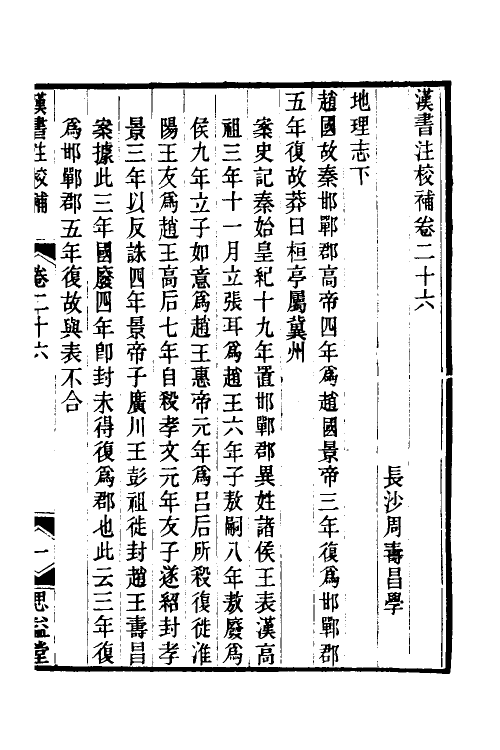 漢書注校補卷二十六
長沙周壽昌學
地理志下
趙國故秦邯鄲郡高帝四年爲趙國景帝三年復爲邯鄲郡
五年復故莽曰桓亭屬冀州
案史記秦始皇紀十九年置邯鄲郡異姓諸侯王表漢高
祖三年十一月立張耳爲趙王六年子敖嗣八年敖廢爲
侯九年立子如意爲趙王惠帝元年爲呂后所殺復徙淮
陽王友爲趙王高后七年自殺孝文元年友子遂紹封孝
景三年以反誅四年景帝子廣川王彭祖徙封趙王壽昌
案據此三年國廢四年卽封未得復爲郡也此云三年復
爲邯鄲郡五年復故與表不合
漢書注校補
卷二十六
一
思益堂